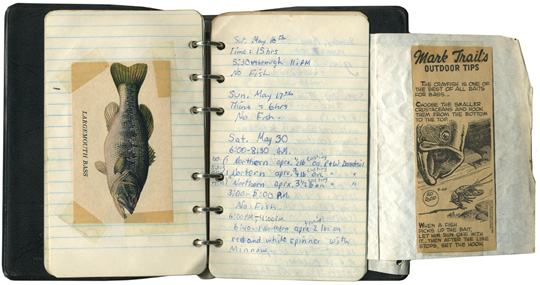 LARGEMOUTH BASS
Sat. May 16th
Time: 15 hrs
5:30 through 11: PM
No Fish
Sun. May 17th
Time: 6 hrs
No Fish.
Sat. May 30
6:00-8:30 A.M.
Northern aprx.
casting
Northern aprx.
casting
Northern aprx. 3½ lb on " "
P.M.
No Fish.
6:00 PM
Northern aprx 2 lbs on
red and white spinner with
Minnow
Mark Trail's
OUTDOOR TIPS
THE CRAYFISH IS ONE OF
THE BEST OF ALL BAITS
FOR BASS...
CHOOSE THE SMALLER
CRUSTACEANS AND HOOK
THEM FROM THE BOTTOM
TO THE TOP.
ED
DODD
WHEN A FISH
PICKS UP THE BAIT,
LET HIM RUN OFF WITH
IT...THEN AFTER THE LINE
STOPS, SET THE HOOK